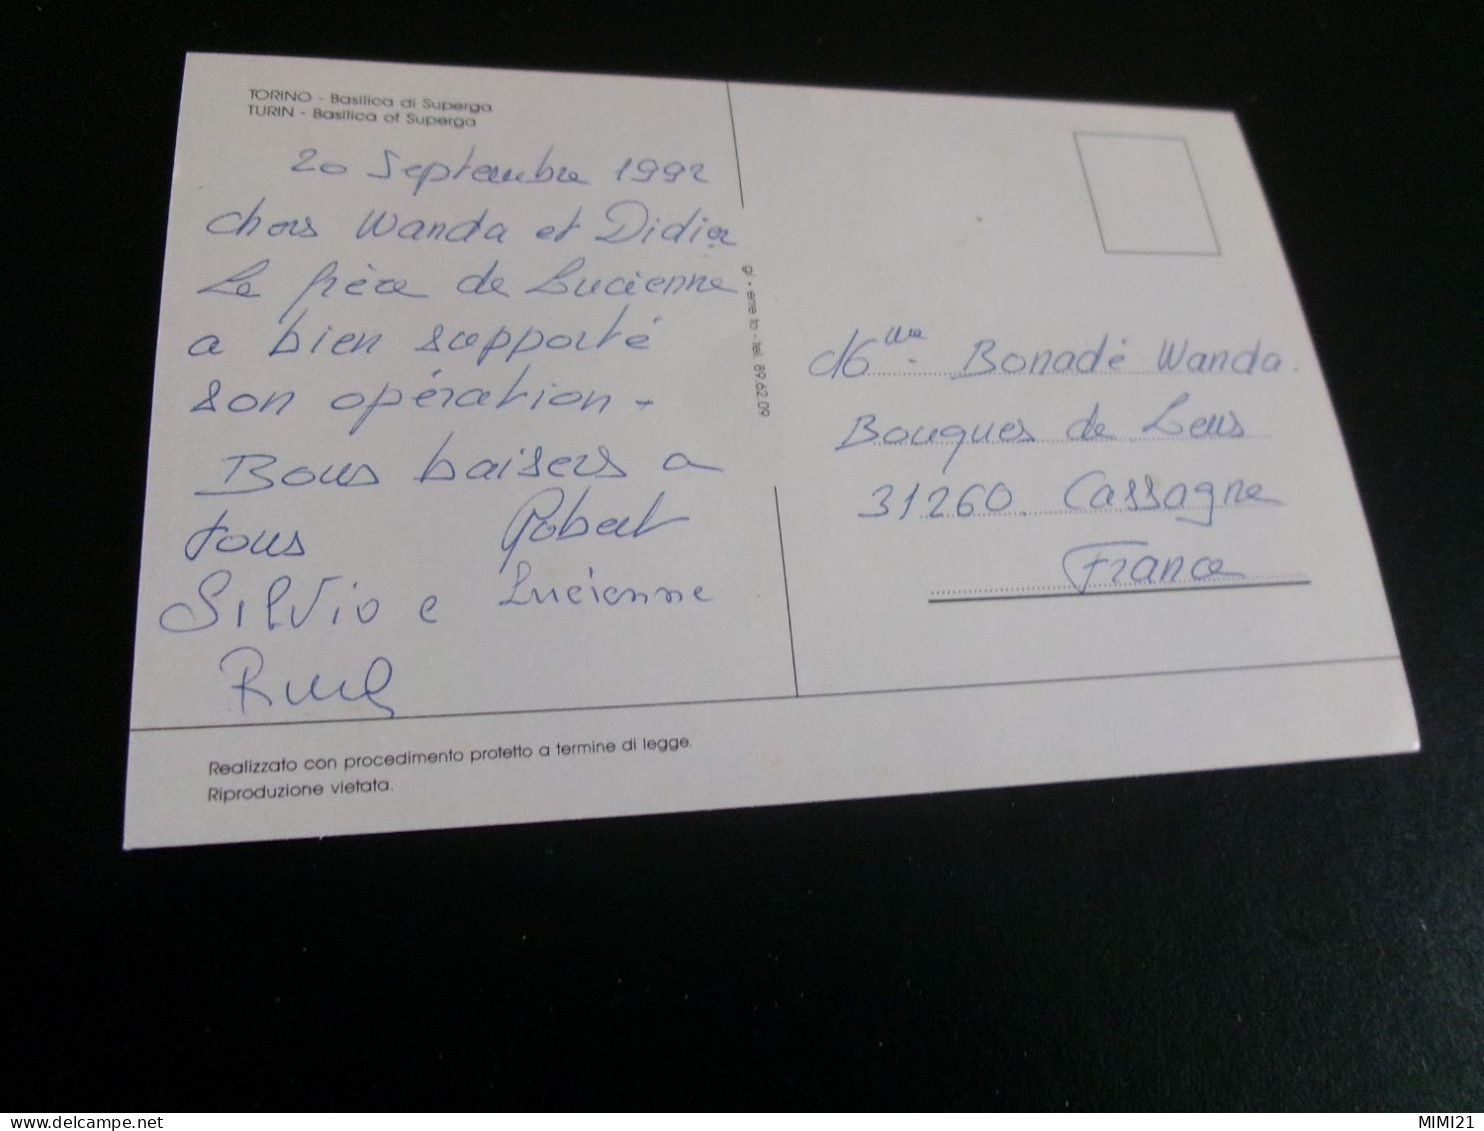 TORINO - Basilica di Superga
TURIN - Basilica of Superga
20 Septembre 1992
Chers Wanda et Didier
Le frère de Lucienne
a bien supporté
son opération -
Bons baisers a
tous Robert
Silvio e Lucienne
gi • eme to - tel. 89.62.09
Mme Bonadé Wanda.
Bouques de Lens
31260. Cassagne
France
Realizzato con procedimento protetto a termine di legge.
Riproduzione vietata.
www.delcampe.net
MIMI21